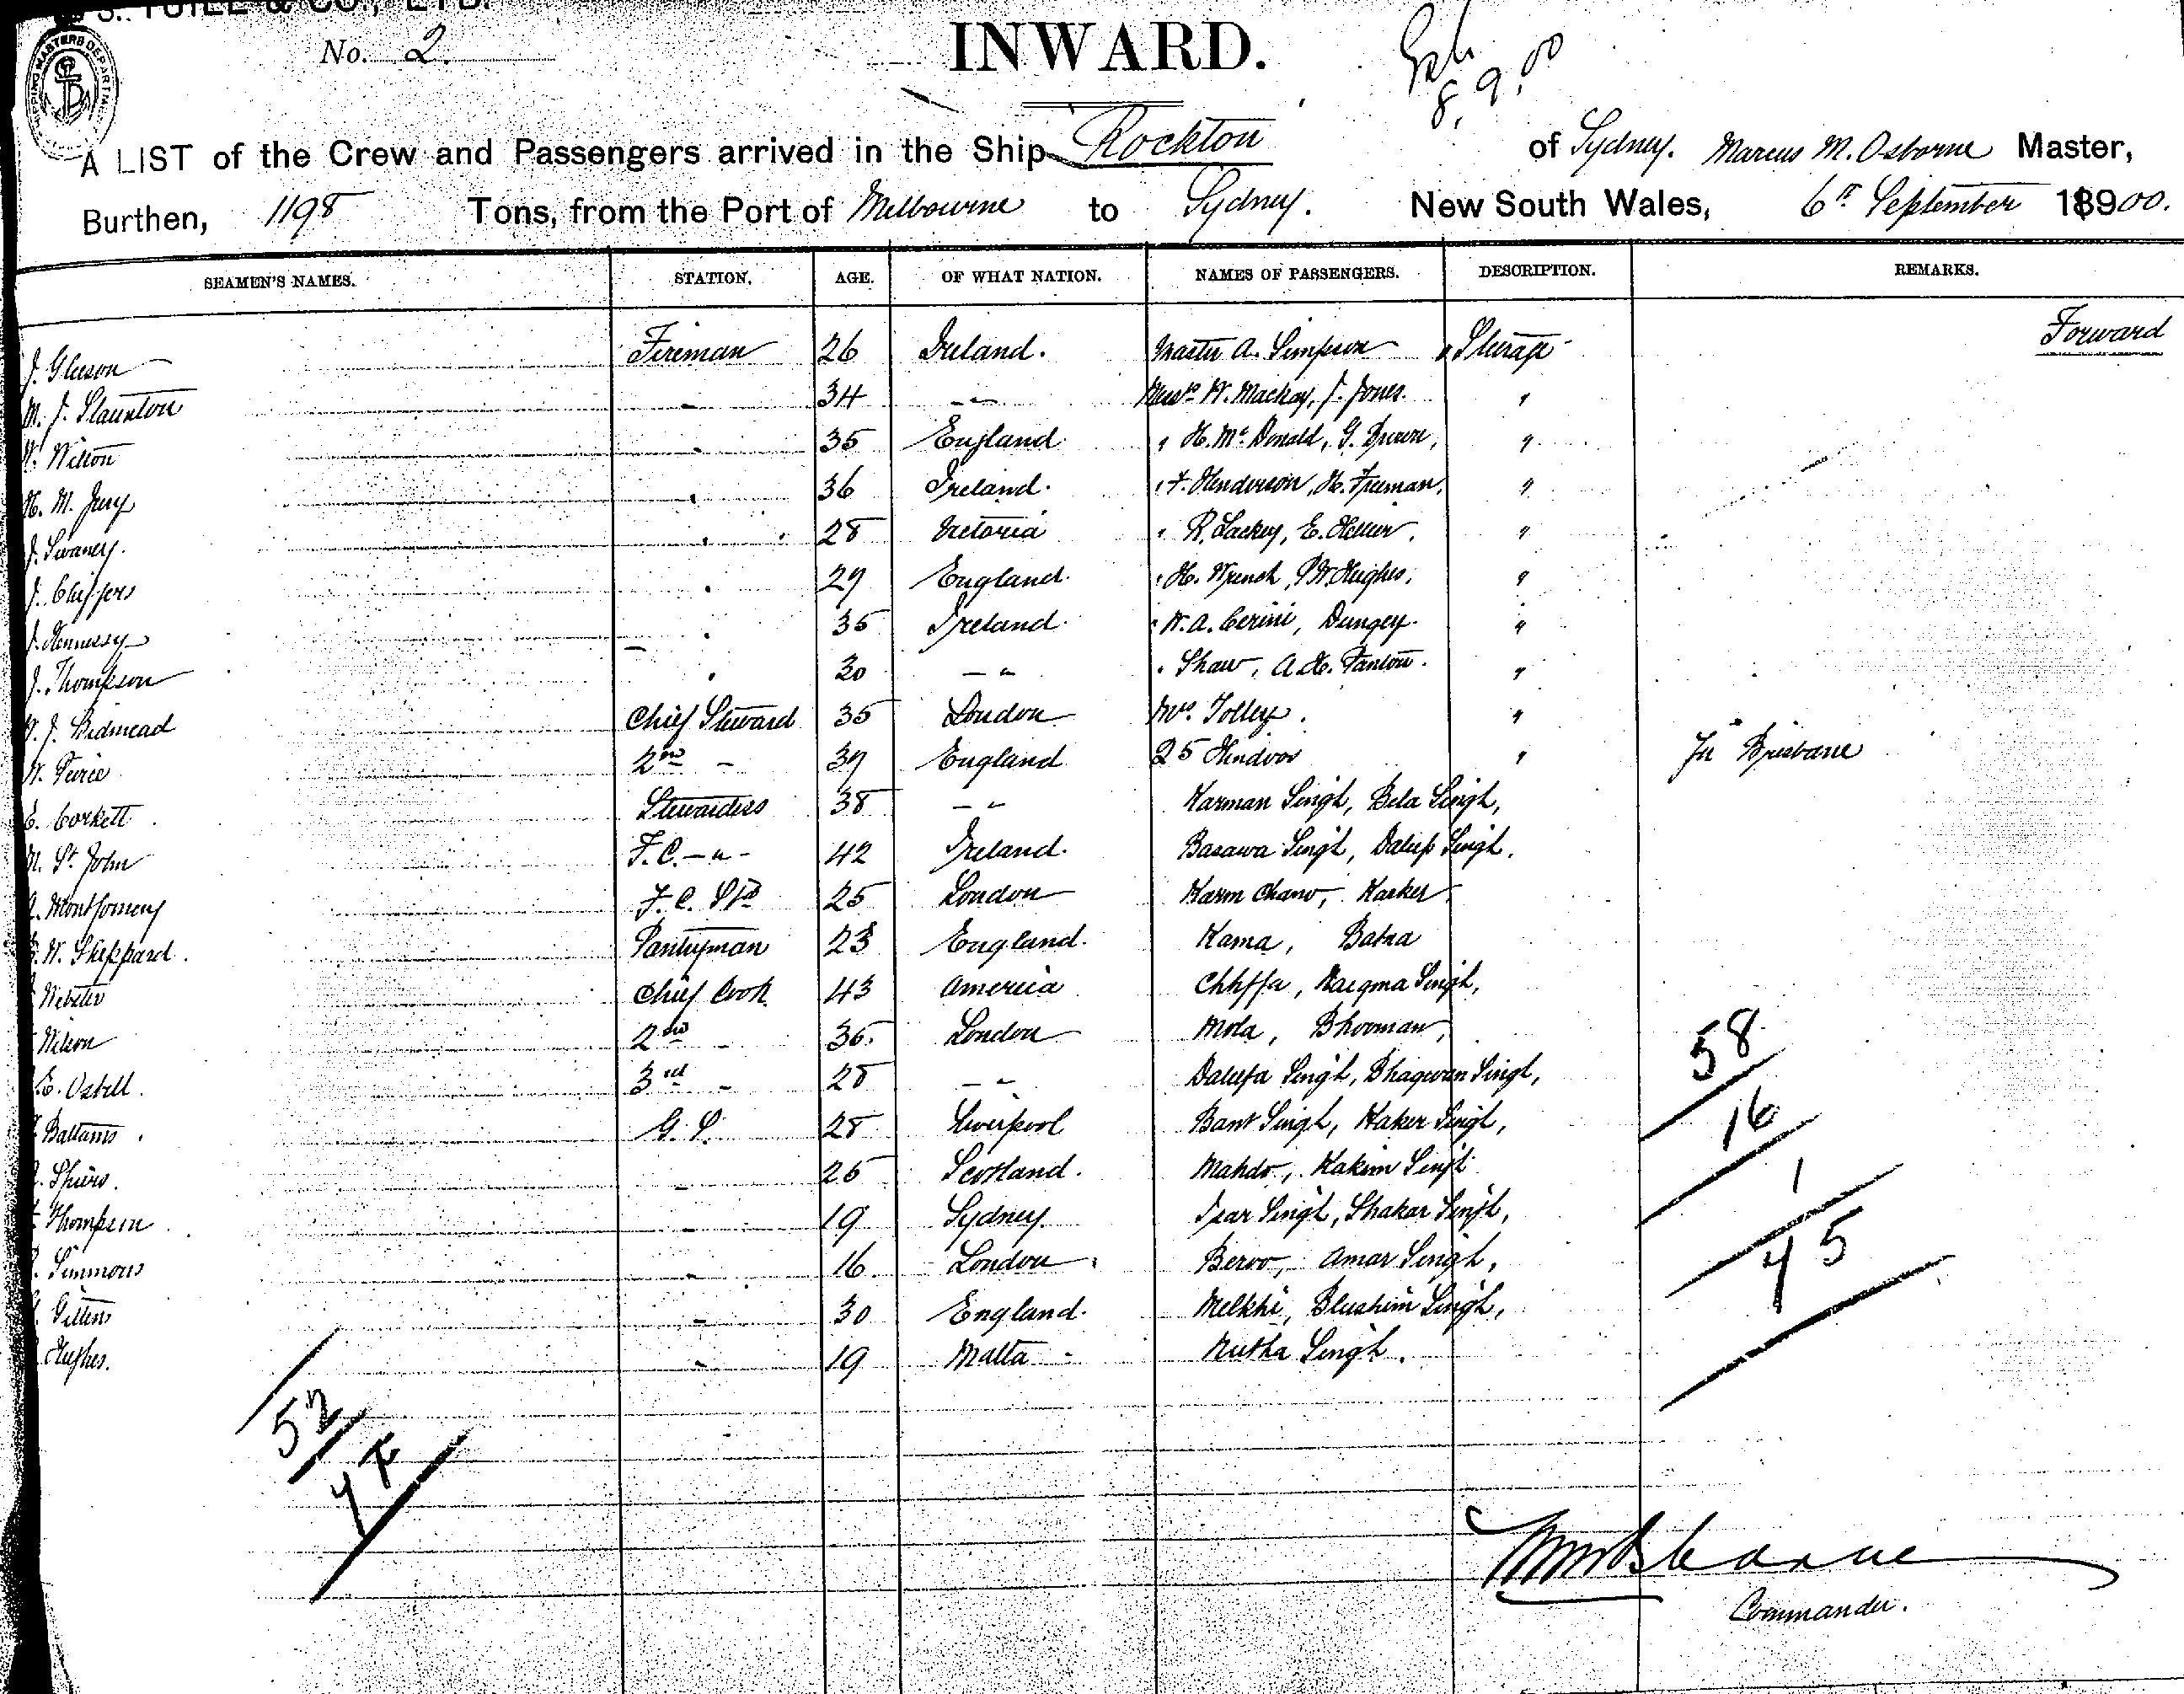 No. 2.
INWARD.
8.9.00
A LIST of the Crew and Passengers arrived in the Ship Rockton of Sydney. Marcus M. Osborne Master,
Burthen, 1198 Tons, from the Port of Melbourne to Sydney. New South Wales, 6th September 1900.
SEAMEN'S NAMES. STATION. AGE. OF WHAT NATION. NAMES OF PASSENGERS. DESCRIPTION. REMARKS.
Forward
J. Gleeson Fireman 26 Ireland. Master A. Simpson Steerage
M. J. Staunton - 34 -"- Messrs W. Mackay, J. Jones. "
W. Wilton - 35 England. " H. McDonald, G. Brown, "
H. M. Jury " 36 Ireland. " F. Henderson, H. Freeman, "
J. Swaney. " 28 Victoria " R. Lackey, E. Hellier, "
J. Chippers " 29 England. " H. Wrench, P.W. Hughes, "
J. Hennessy " 35 Ireland. " W. A. Cerini, Dungey. "
J. Thompson " 30 -"- " Shaw, A. H. Panton. "
W. J. Bidmead Chief Steward 35 London Mrs. Tolley. "
W. Peirce 2nd - 39 England 25 Hindoos " For Brisbane
E. Corkett Stewardess 38 -"- Karman Singh, Bela Singh,
M. St. John F.C. -"- 42 Ireland. Basawa Singh, Daleep Singh.
Montgomery F.C. Std 25 London Karm Chand, Karker,
W. Sheppard. Pantryman 23 England. Kama, Batna
Webster Chief Cook 43 America Singh,
Wilson 2nd - 36. London Mola, Bhooman,
E. Osbell. 3rd - 28 -"- Singh, Bhagwan Singh,
Battams. G. S. 28 Liverpool Bant Singh, Kaker Singh,
Spiers. - 26 Scotland. Mahdo, Kakim Singh
Thompson - 19 Sydney Isar Singh, Shakar Singh,
Simmons - 16 London Beroo, Amar Singh,
Gittens - 30 England. Melkhi, Singh,
Hughes. - 19 Malta - Nutha Singh.
58
16
1
45
52
47
M M Osborne
Commander.